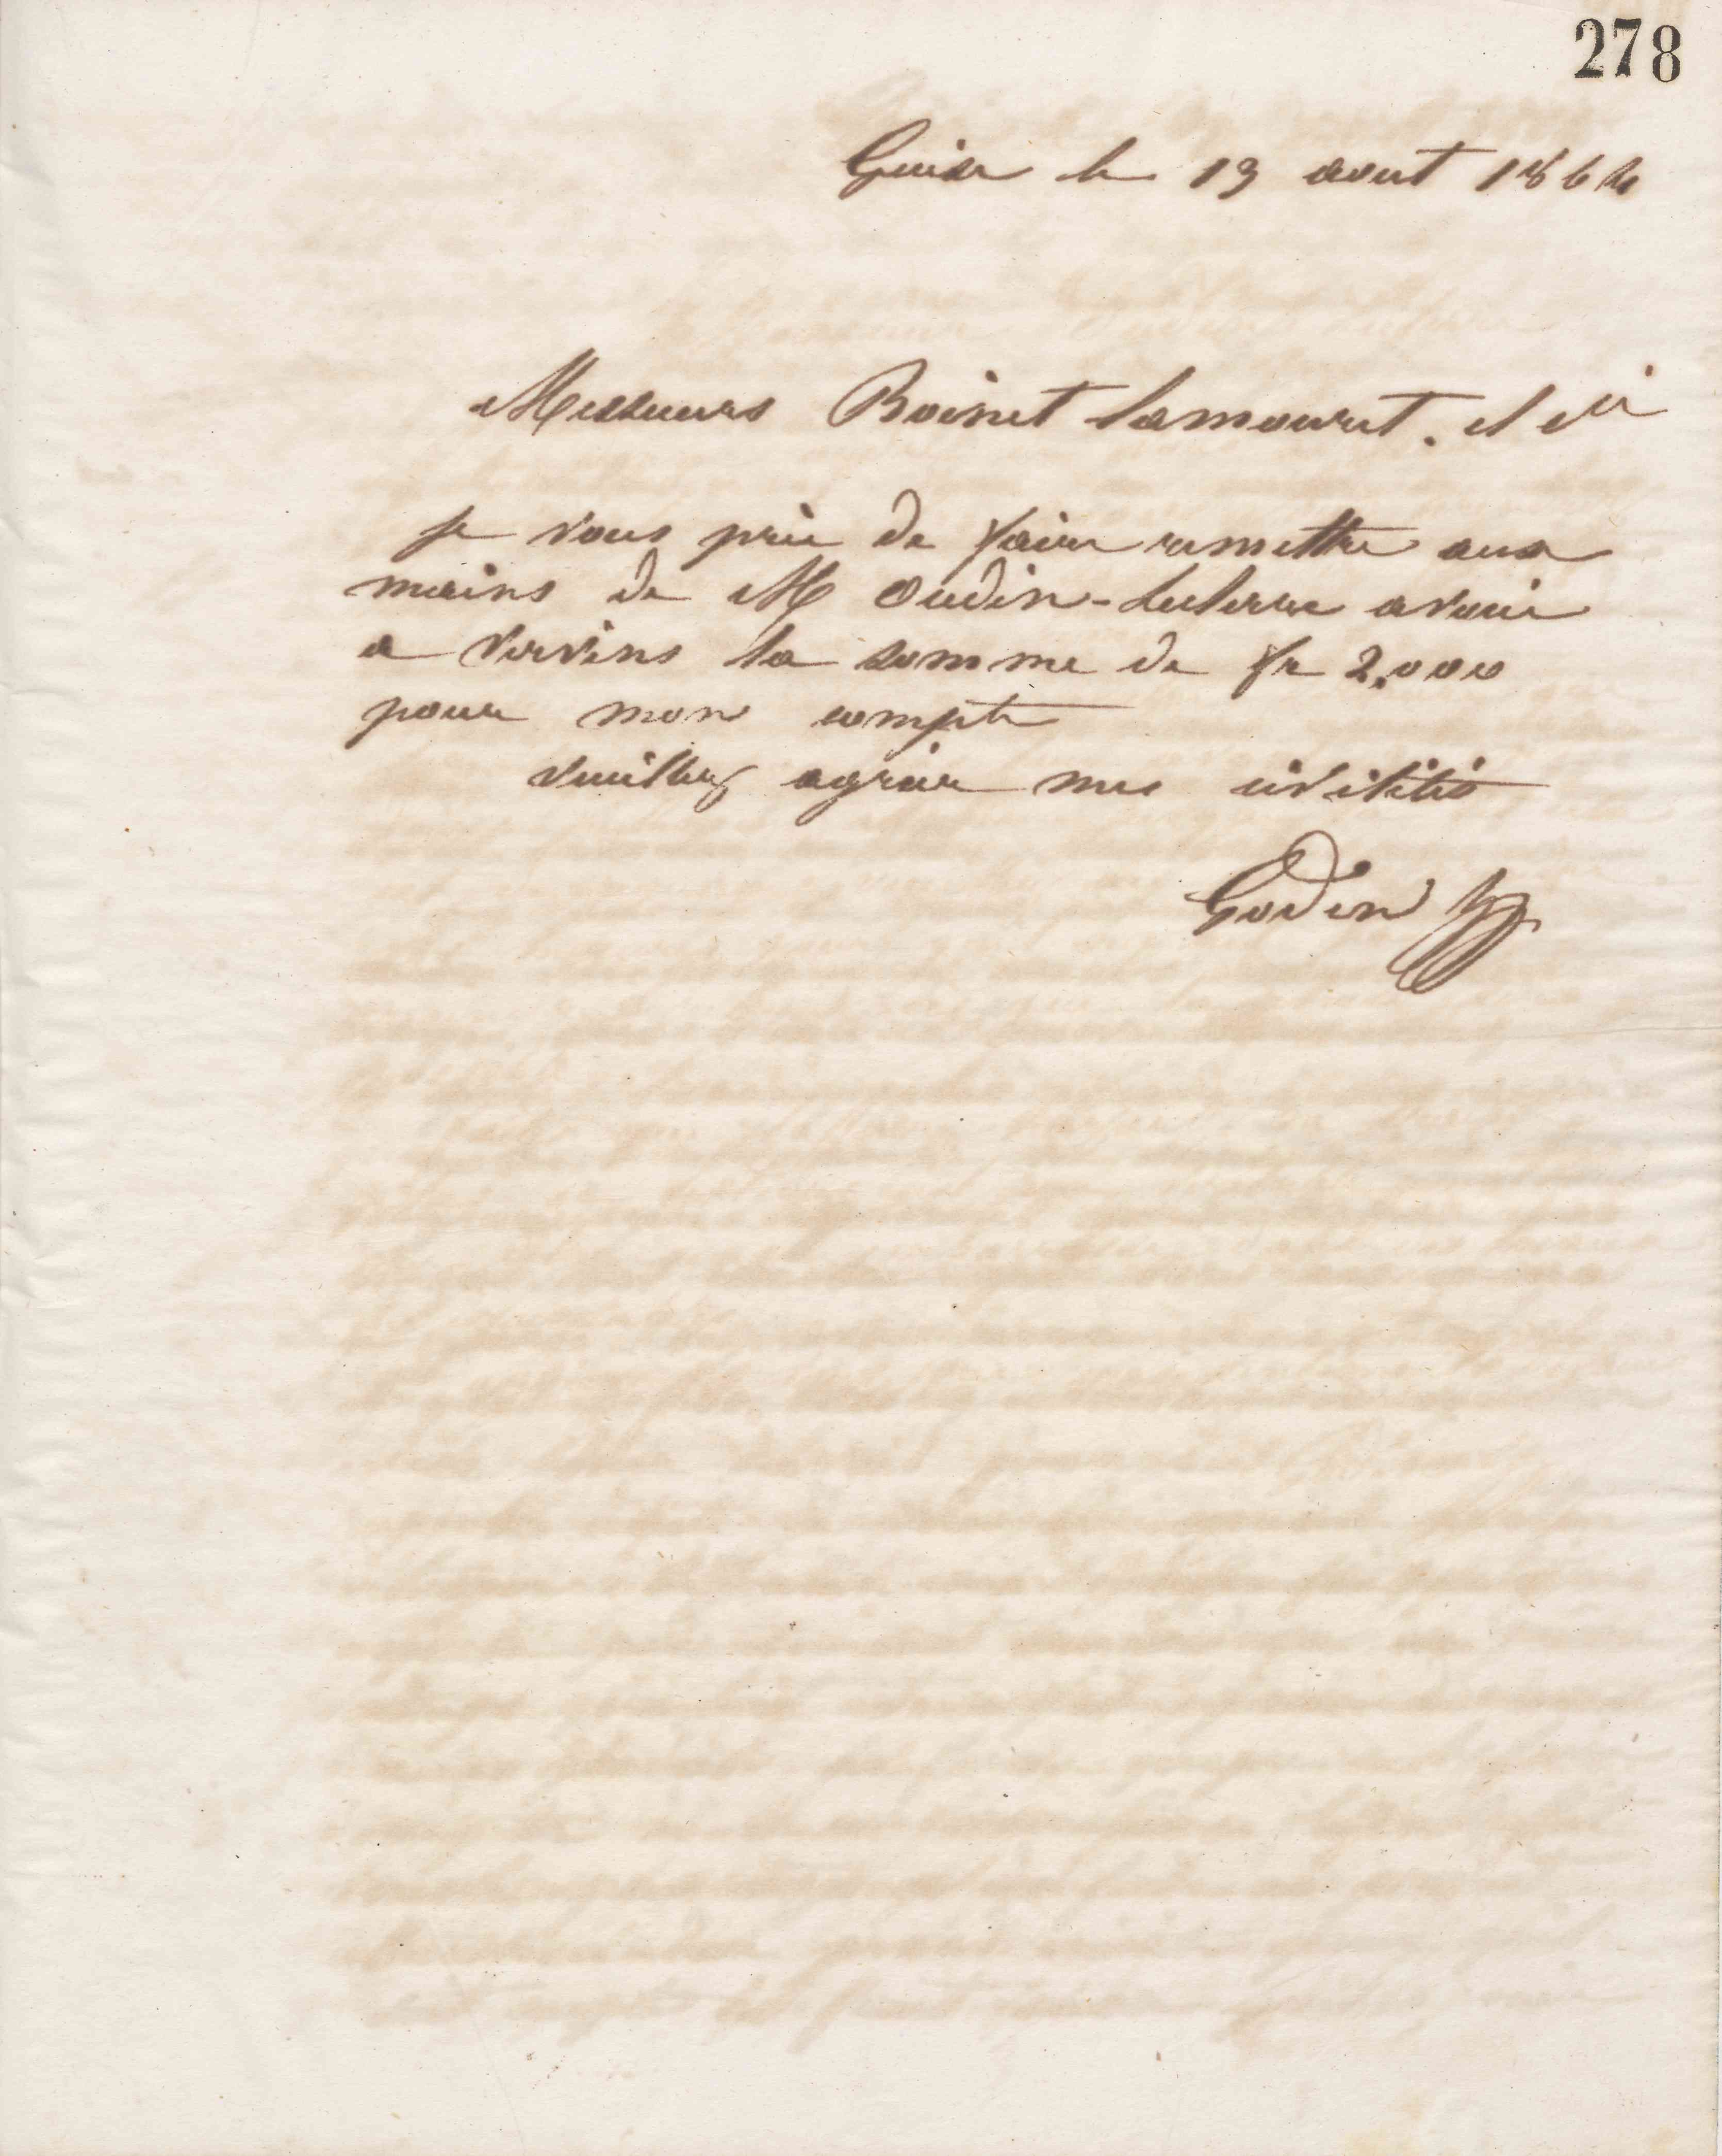 278
Guise le 19 aout 1864
Messieurs Boinet Lamouret. et Cie
je vous prie de faire remettre aux
mains de M Oudin-Leclerc avoué
a Vervins la somme de fr 2.000
pour mon compte
veuillez agréer mes civilités
Godin